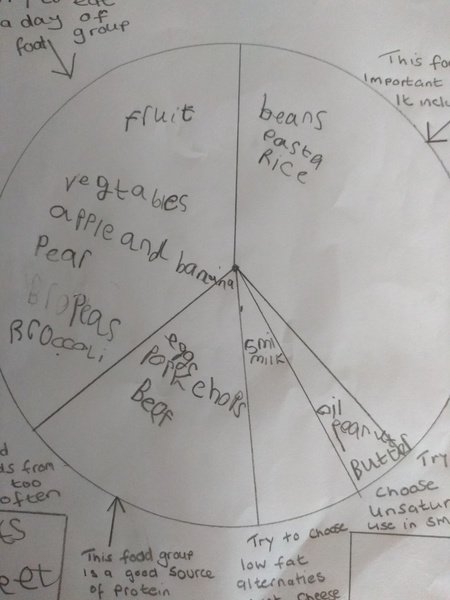 to eat
a day of
food group
This fo
important
It inclu
fruit
beans
pasta
Rice
vegtables
apple and banana
Pear
Bro Peas
Broccoli
eggs
Pork chops
Beef
Semi
milk
oil
Peanuts
Butter
s from
too
often
ts
eet
This food group
is a good source
of protein
Try to choose
low fat
alternaties
cheese
Try
choose
unsatur
use in sm